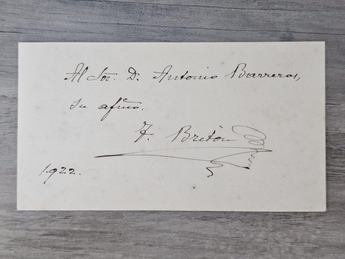 Al Sor. D. Antonio Barreros,
su afmo.
T. Bretón
1922.